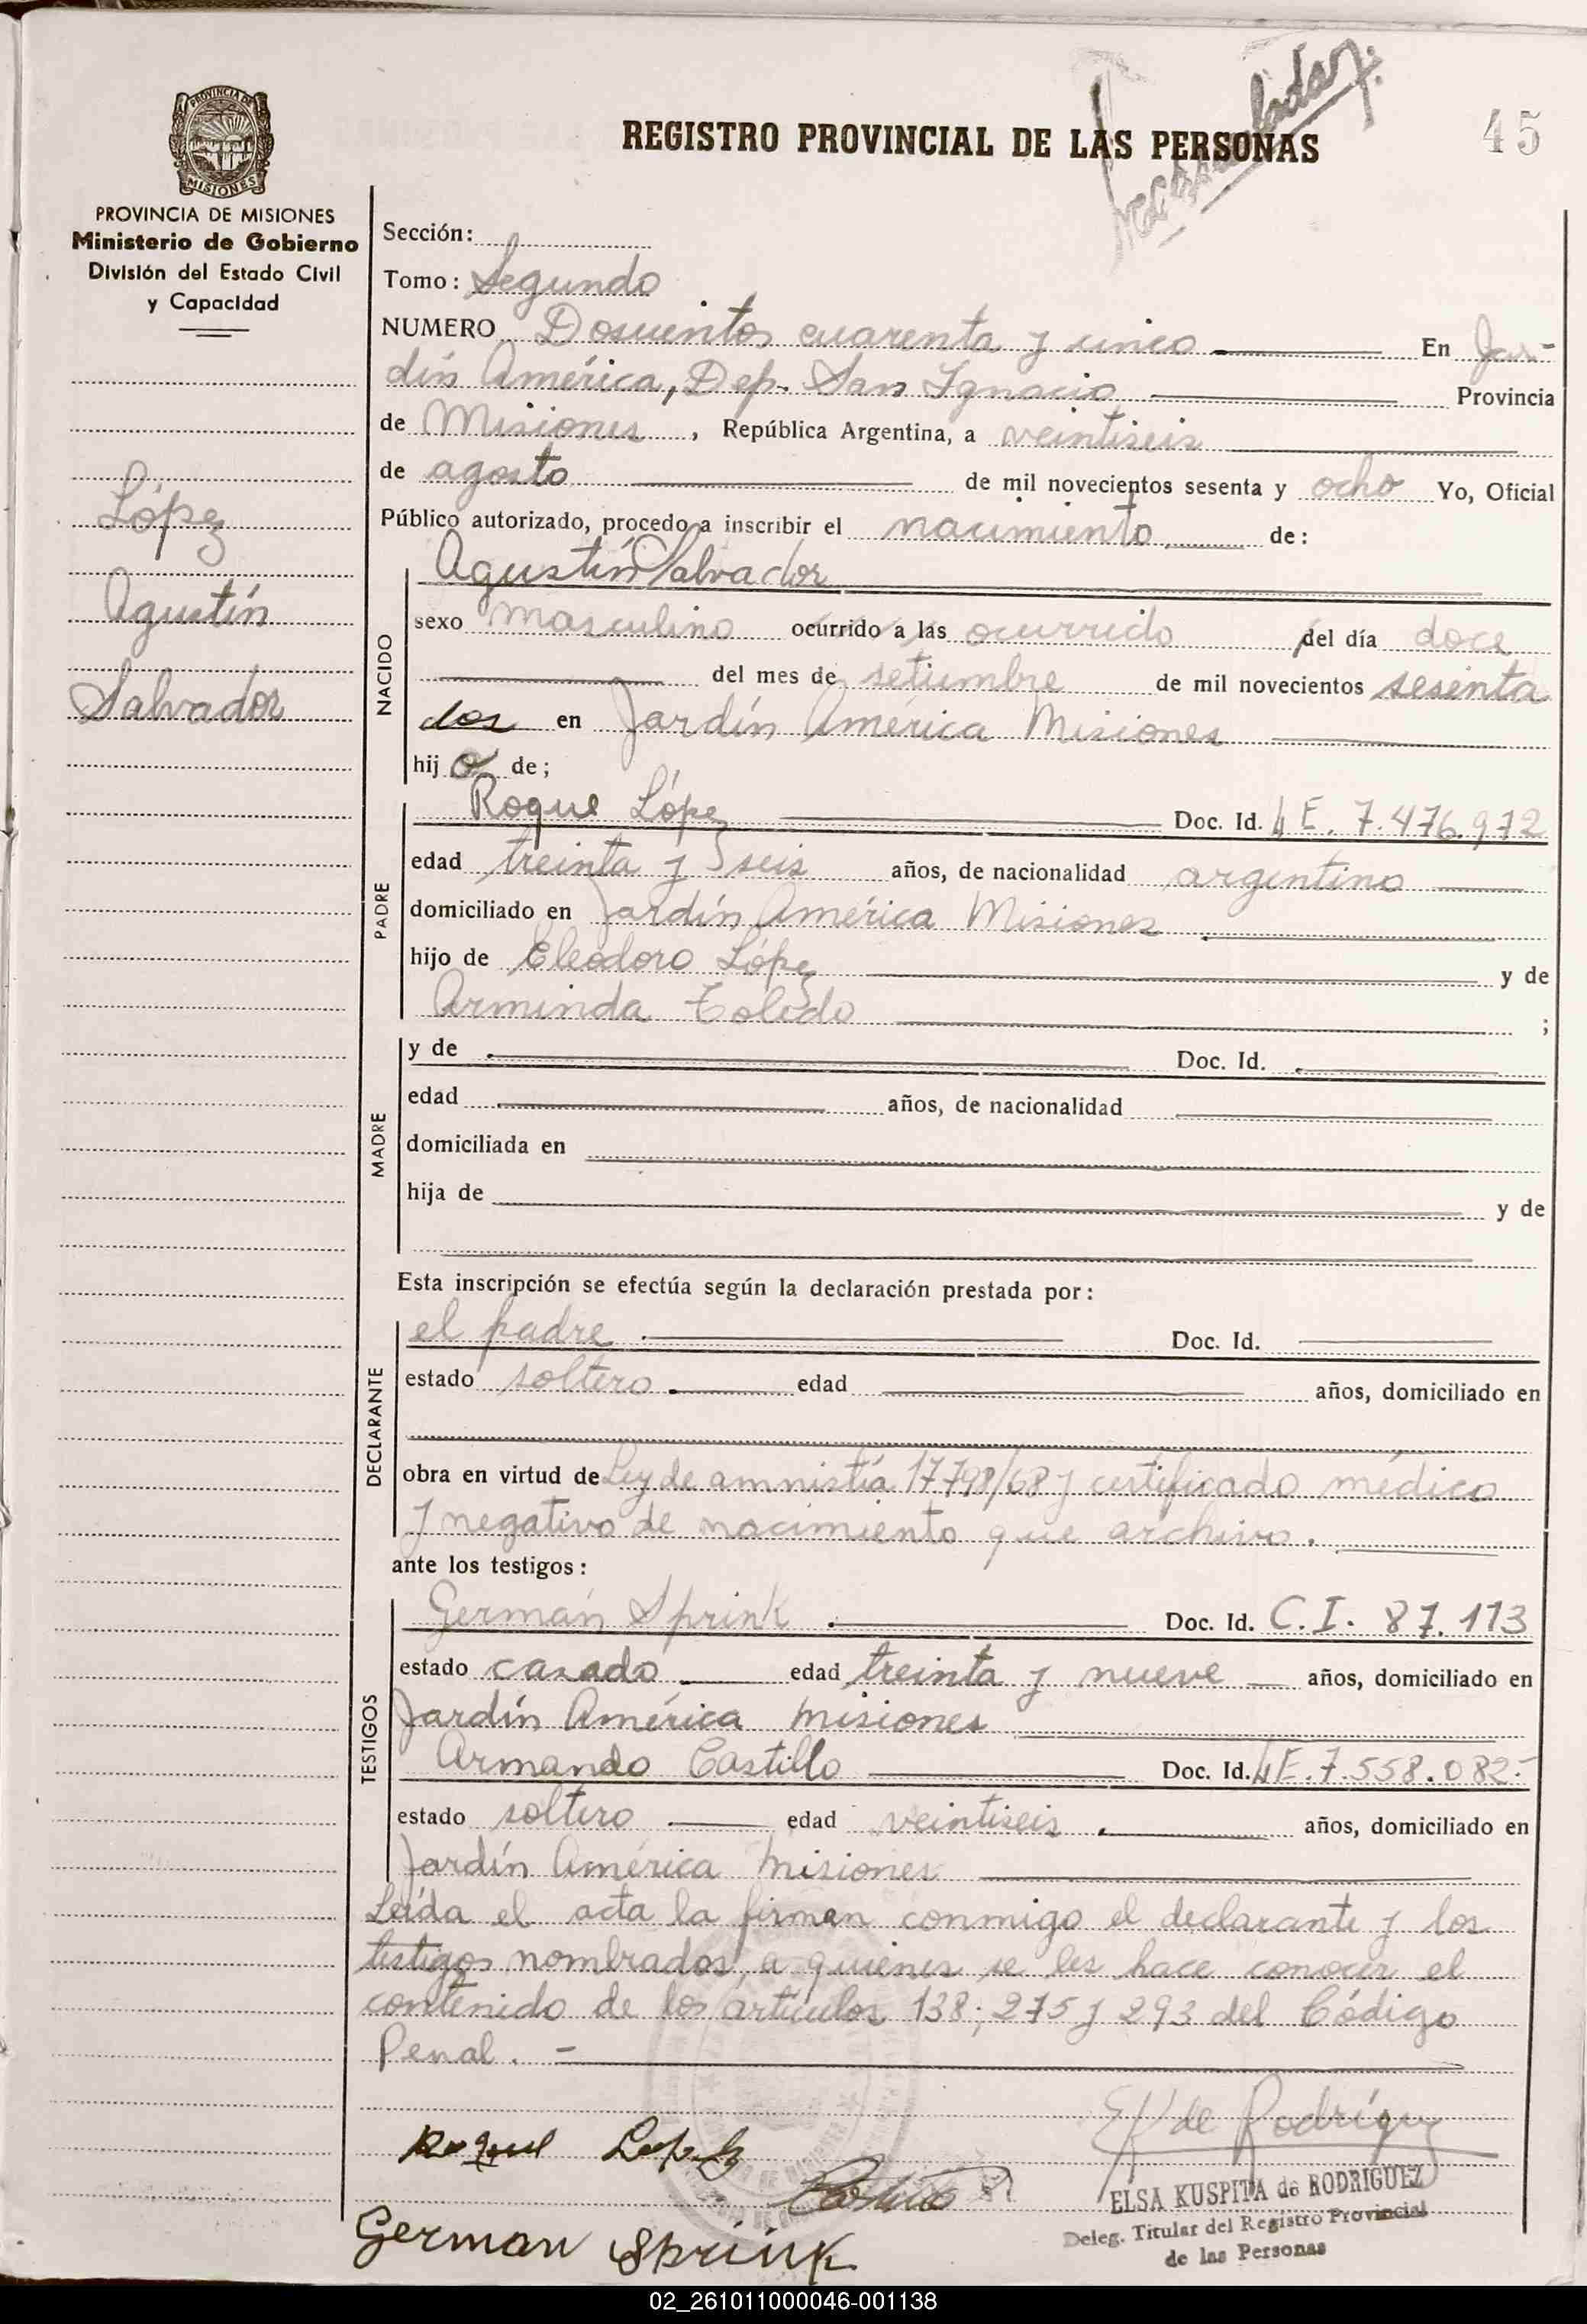 45
REGISTRO PROVINCIAL DE LAS PERSONAS
PROVINCIA DE
MISIONES
PROVINCIA DE MISIONES
Ministerio de Gobierno
División del Estado Civil
y Capacidad
López
Agustín
Salvador
Sección:
Tomo: Segundo
NUMERO Doscientos cuarenta y cinco En Jar-
dín América, Dep. San Ignacio Provincia
de Misiones, República Argentina, a veintiseis
de agosto de mil novecientos sesenta y ocho Yo, Oficial
Público autorizado, procedo a inscribir el nacimiento de:
NACIDO
Agustín Salvador
sexo masculino ocurrido a las ocurrido del día doce
del mes de setiembre de mil novecientos sesenta
dos en Jardín América Misiones
hij o de;
PADRE
Roque López Doc. Id. L E. 7.476.972
edad treinta y seis años, de nacionalidad argentino
domiciliado en Jardín América Misiones
hijo de Eleodoro López y de
Arminda Toledo ;
MADRE
y de Doc. Id.
edad años, de nacionalidad
domiciliada en
hija de y de
Esta inscripción se efectúa según la declaración prestada por:
DECLARANTE
el padre Doc. Id.
estado soltero edad años, domiciliado en
obra en virtud de Ley de amnistía 17798/68 y certificado médico
y negativo de nacimiento que archivo.
ante los testigos:
TESTIGOS
Germán Sprink Doc. Id. C.I. 87.113
estado casado edad treinta y nueve años, domiciliado en
Jardín América Misiones
Armando Castillo Doc. Id. L E. 7.558.082.-
estado soltero edad veintiseis años, domiciliado en
Jardín América Misiones
Leída el acta la firman conmigo el declarante y los
testigos nombrados, a quienes se les hace conocer el
contenido de los artículos 138; 275 y 293 del Código
Penal. -
EK de Rodríguez
Roque Lopez
Castillo
ELSA KUSPITA de RODRIGUEZ
Deleg. Titular del Registro Provincial
de las Personas
German Sprink
02_261011000046-001138